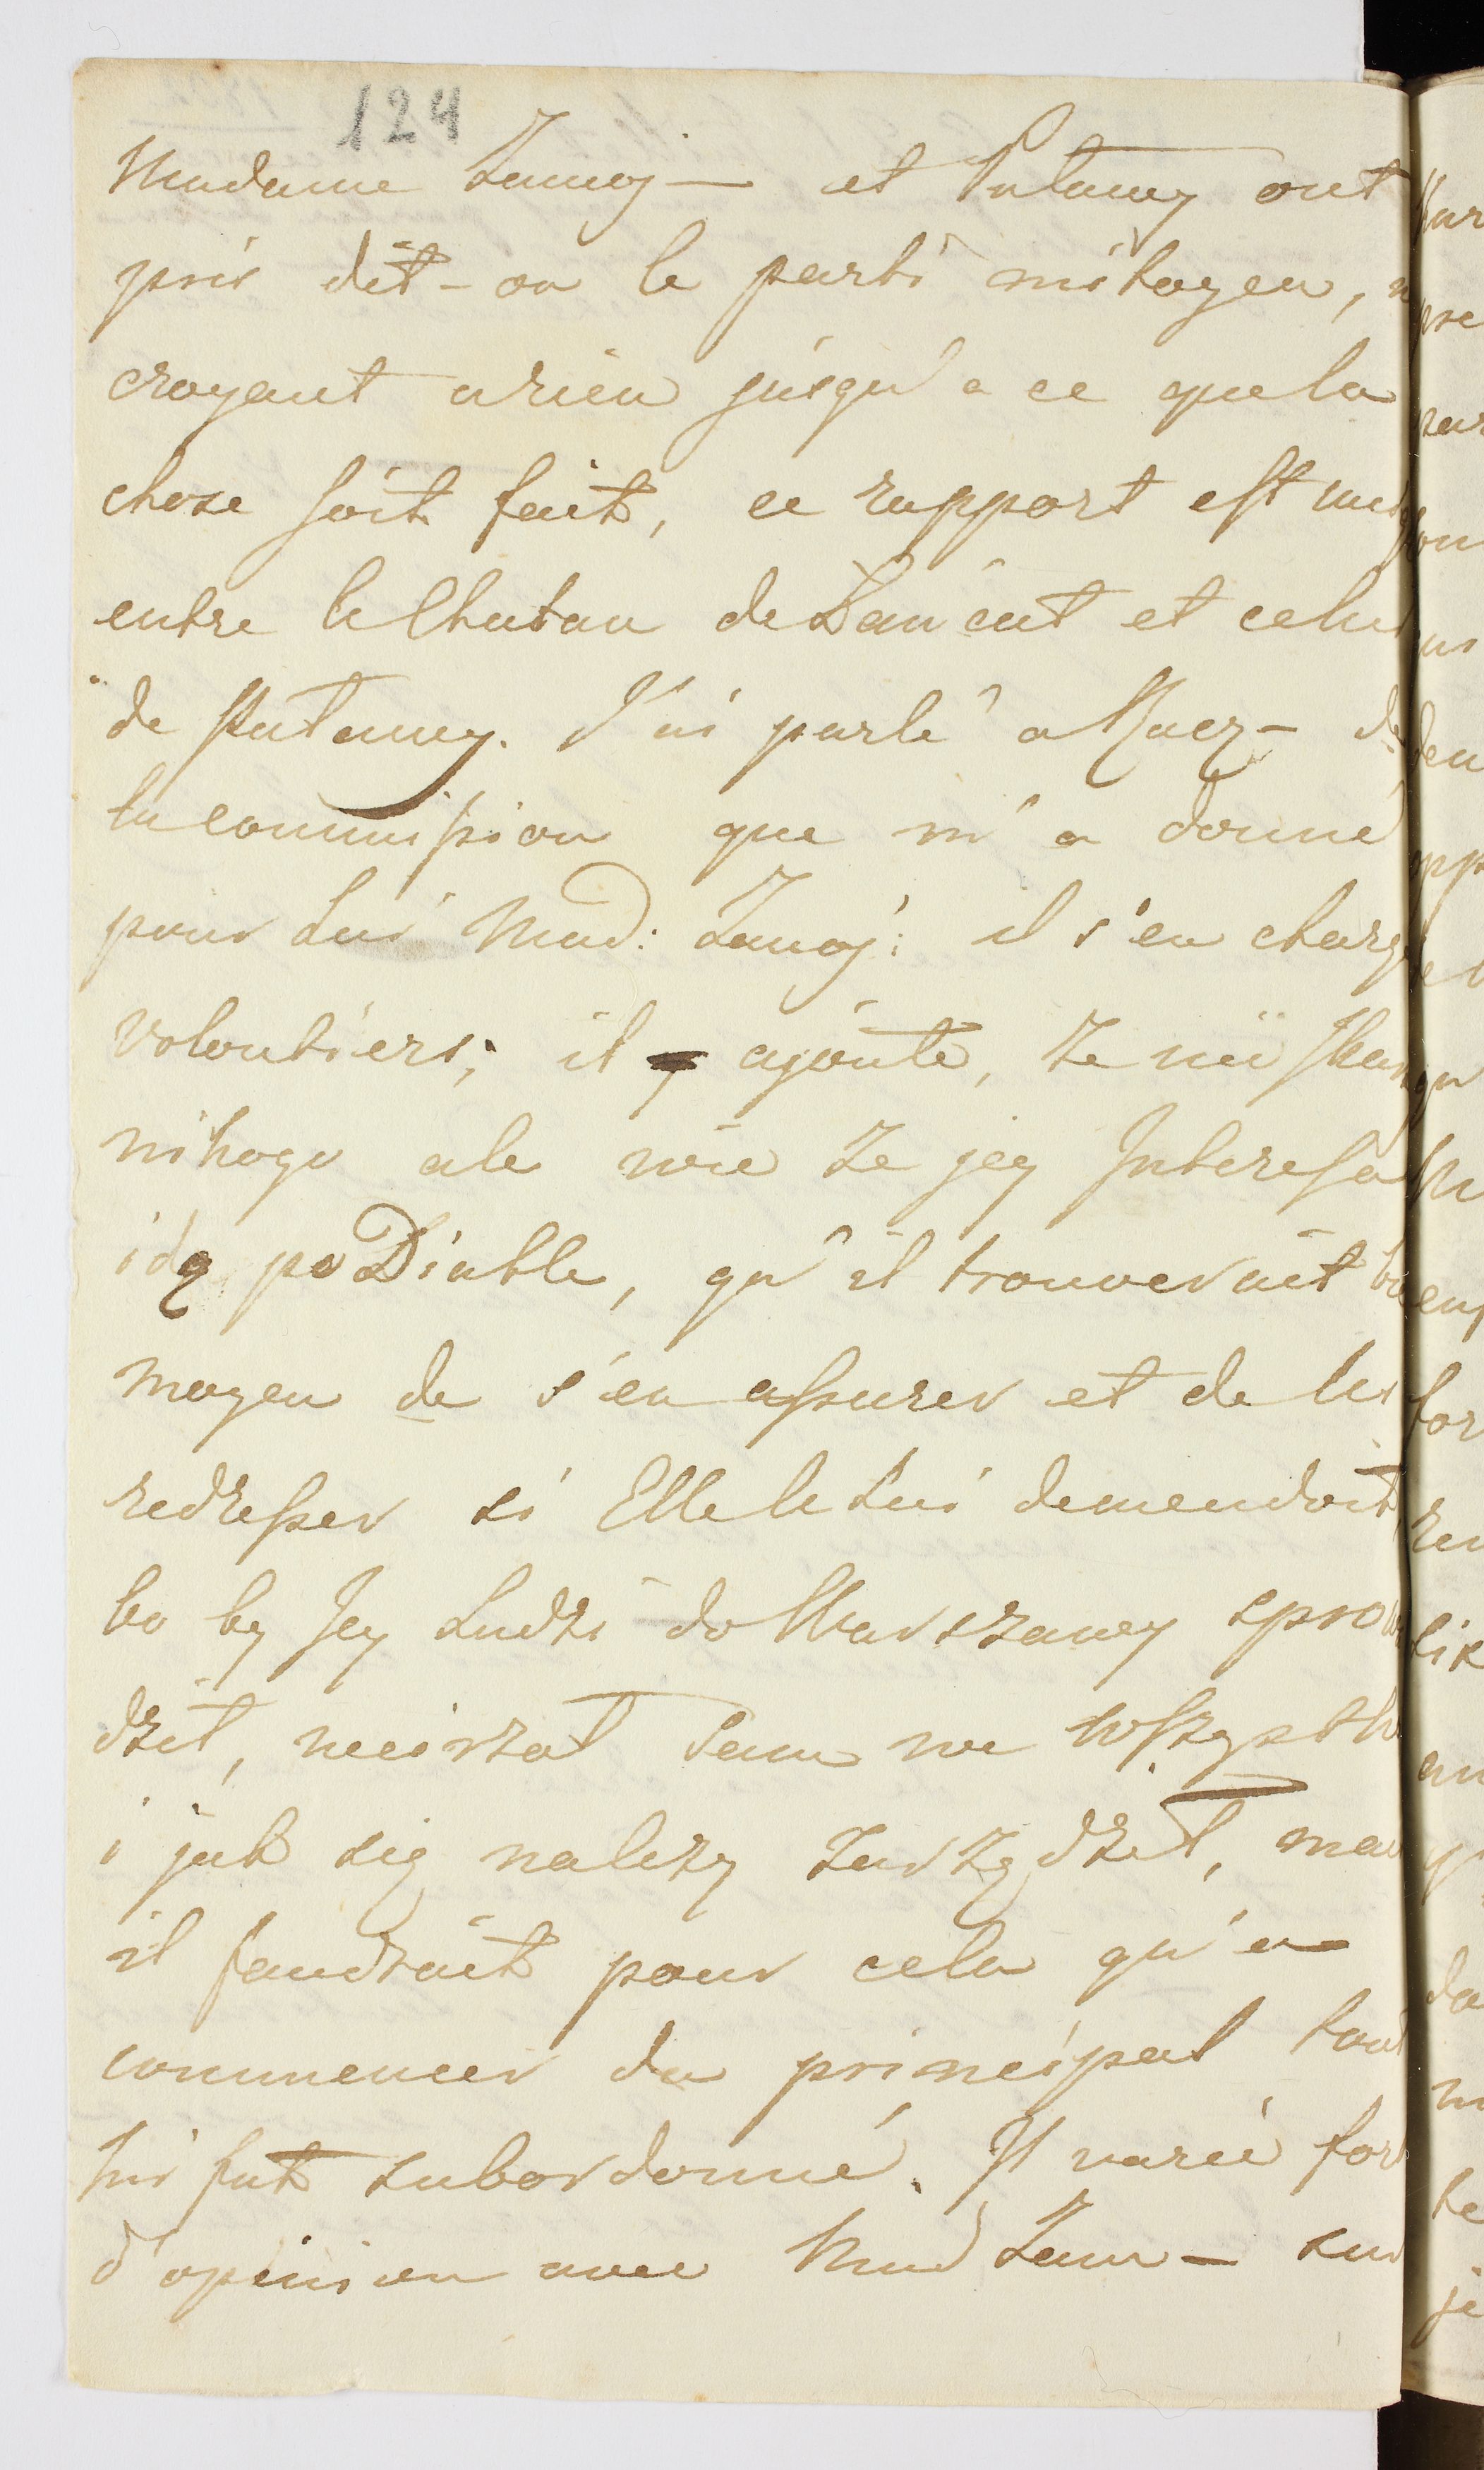 124
Madame Zamoy— et Pulawy ont
pris dit-on le parti mitoyen, n
croyant a rien jusqu'a ce que la
chose soit fait, ce rapport est
entre le Chateau de Łańcut et celui
de Pulawy. J'ai parlé a Kucz— de
la commission que m'a donné
pour Lui Mad: Zamoy: il s'en charge
volontiers; il ajoute, że nie
nikogo ale wie że jey Interessa
idą po Diable, qu'il trouverait
moyen de s'en assurer et de les
redresser si Elle le Lui demendoit,
bo by Jey Ludzi do Warszawy sprow
dził, Pana we wszystk
i jak się należy zarządził, mai
il faudrait pour cela qu'a
commencer du principal tout
lui fut subordonné. Il varie fort
d'opinion avec Mad Zam— sur